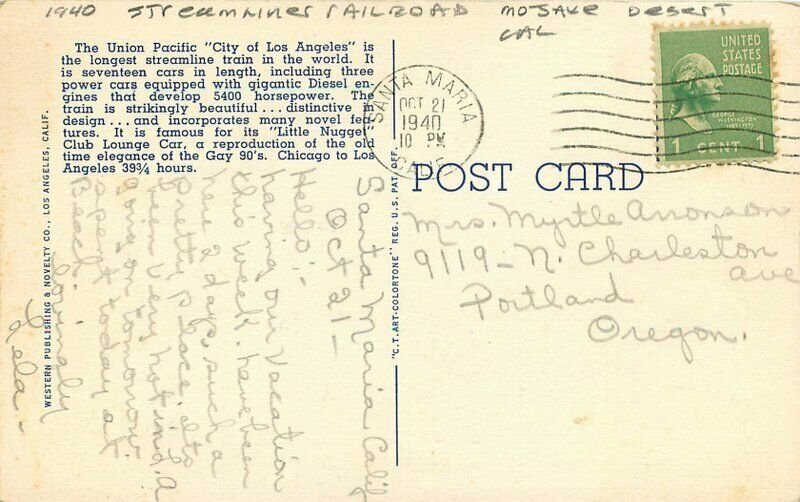 1940 STREAMLINER RAILROAD MOJAVE DESERT
CAL
The Union Pacific "City of Los Angeles" is
the longest streamline train in the world. It
is seventeen cars in length, including three
power cars equipped with gigantic Diesel en-
gines that develop 5400 horsepower. The
train is strikingly beautiful . . . distinctive in
design . . . and incorporates many novel fea-
tures. It is famous for its "Little Nugget"
Club Lounge Car, a reproduction of the old
time elegance of the Gay 90's. Chicago to Los
Angeles 39¾ hours.
WESTERN PUBLISHING & NOVELTY CO., LOS ANGELES, CALIF.
"C.T. ART-COLORTONE" REG. U.S. PAT. OFF.
Santa Maria Calif
Oct 21-
Hello:-
having our vacation
this week. have been
here 2 days, such a
pretty place. its
been very hot in L.A
going on tomorrow
spent today at
Beach.
Lovingly
Lela-
SANTA MARIA
OCT 21
1940
10 PM
CALIF.
UNITED
STATES
POSTAGE
GEORGE
WASHINGTON
1789-1797
1 CENT 1
POST CARD
Mrs. Myrtle Aronson
9119-N. Charleston
ave
Portland
Oregon.